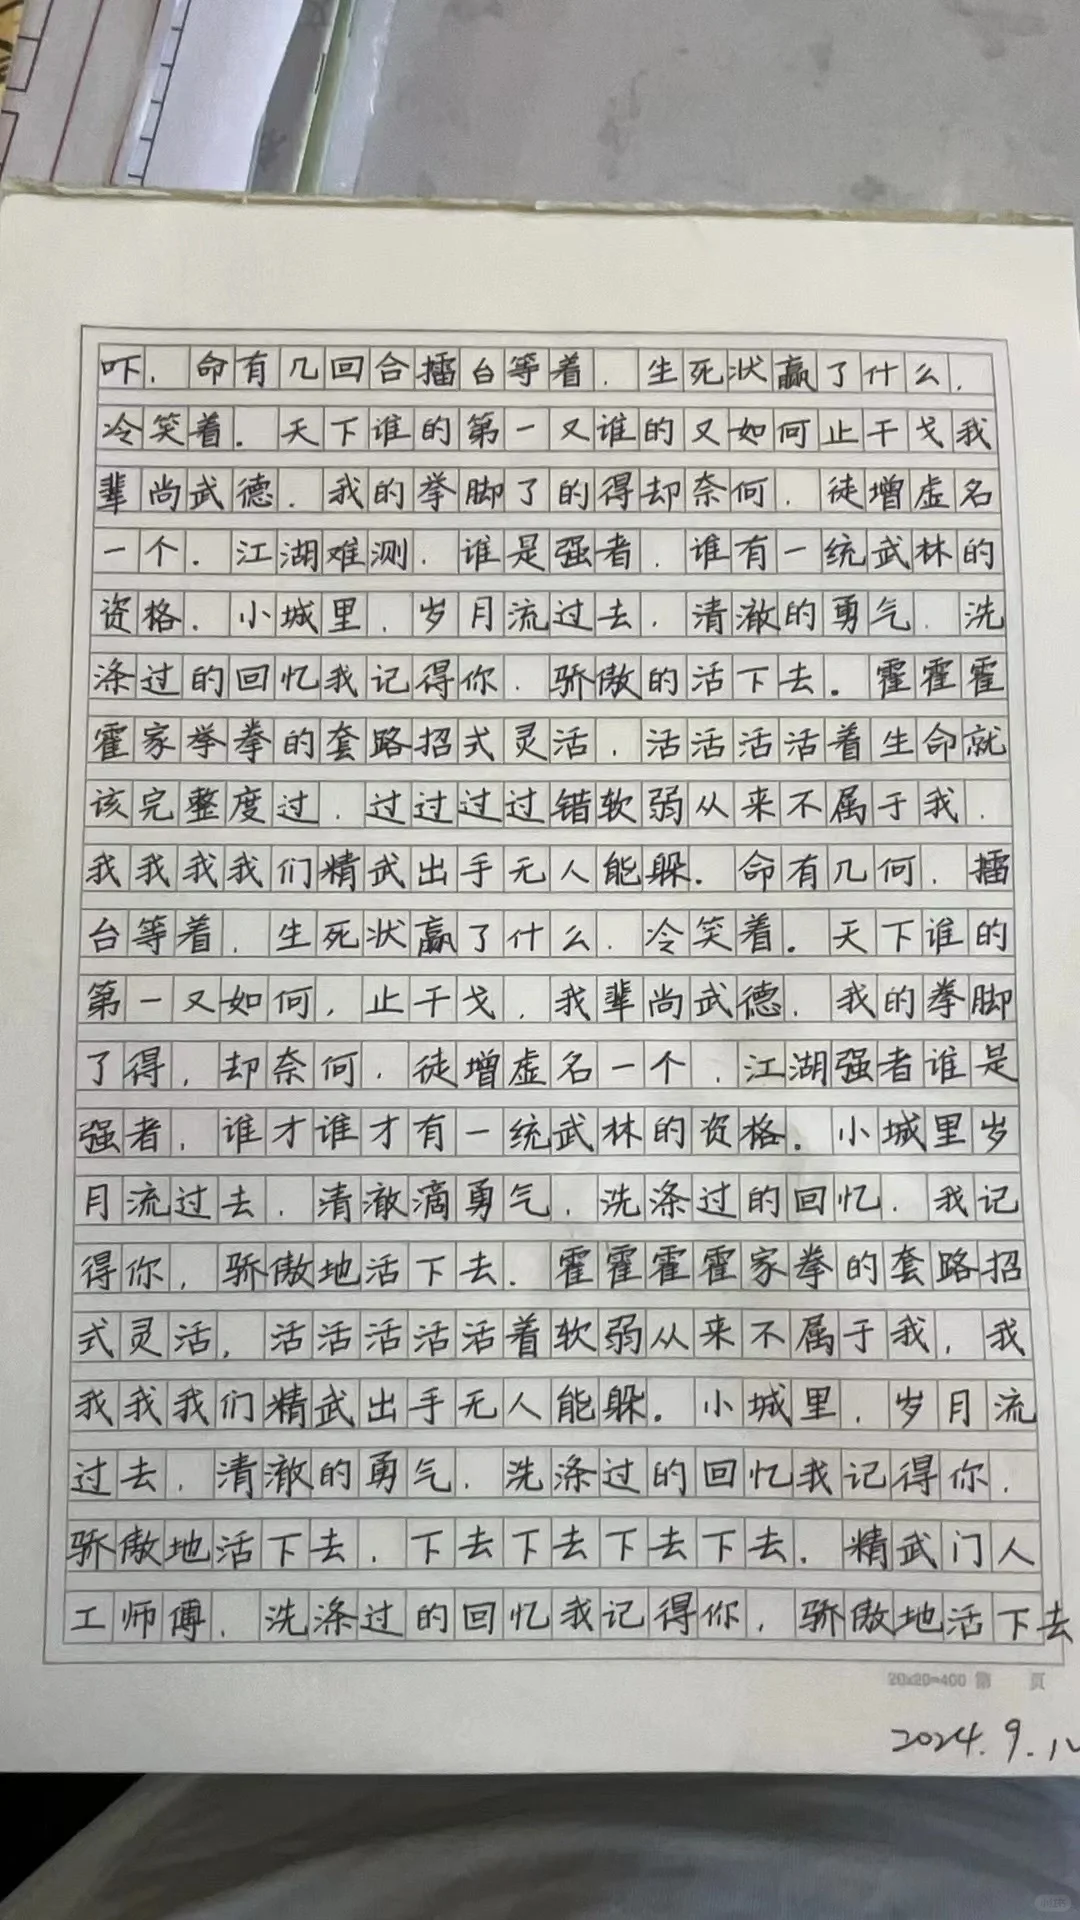 吓，命有几回合擂台等着，生死状赢了什么，
冷笑着。天下谁的第一又谁的又如何止干戈我
辈尚武德，我的拳脚了的得却奈何，徒增虚名
一个。江湖难测，谁是强者，谁有一统武林的
资格。小城里，岁月流过去，清澈的勇气，洗
涤过的回忆我记得你，骄傲的活下去。霍霍霍
霍家拳拳的套路招式灵活，活活活活着生命就
该完整度过，过过过过错软弱从来不属于我，
我我我我们精武出手无人能躲。命有几何，擂
台等着，生死状赢了什么，冷笑着。天下谁的
第一又如何，止干戈，我辈尚武德，我的拳脚
了得，却奈何，徒增虚名一个，江湖强者谁是
强者，谁才谁才有一统武林的资格。小城里岁
月流过去，清澈滴勇气，洗涤过的回忆，我记
得你，骄傲地活下去。霍霍霍霍家拳的套路招
式灵活，活活活活活着软弱从来不属于我，我
我我我们精武出手无人能躲。小城里，岁月流
过去，清澈的勇气，洗涤过的回忆我记得你，
骄傲地活下去，下去下去下去下去。精武门人
工师傅，洗涤过的回忆我记得你，骄傲地活下去
20x20=400 第 頁
2024.9.